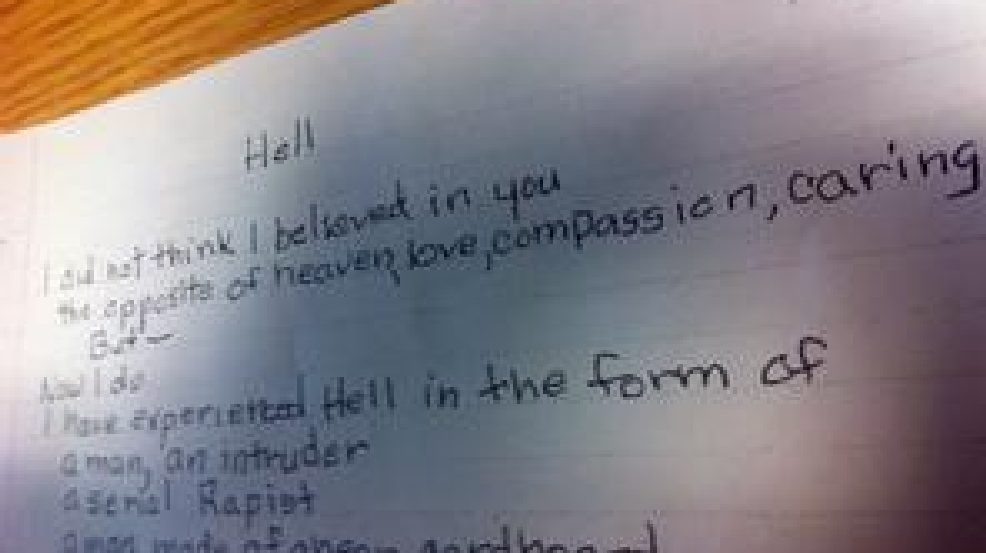 Hell
I did not think I believed in you
the opposite of heaven, love, compassion, caring
But—
Now I do
I have experienced Hell in the form of
a man, an intruder
a serial Rapist
a man made of anger and